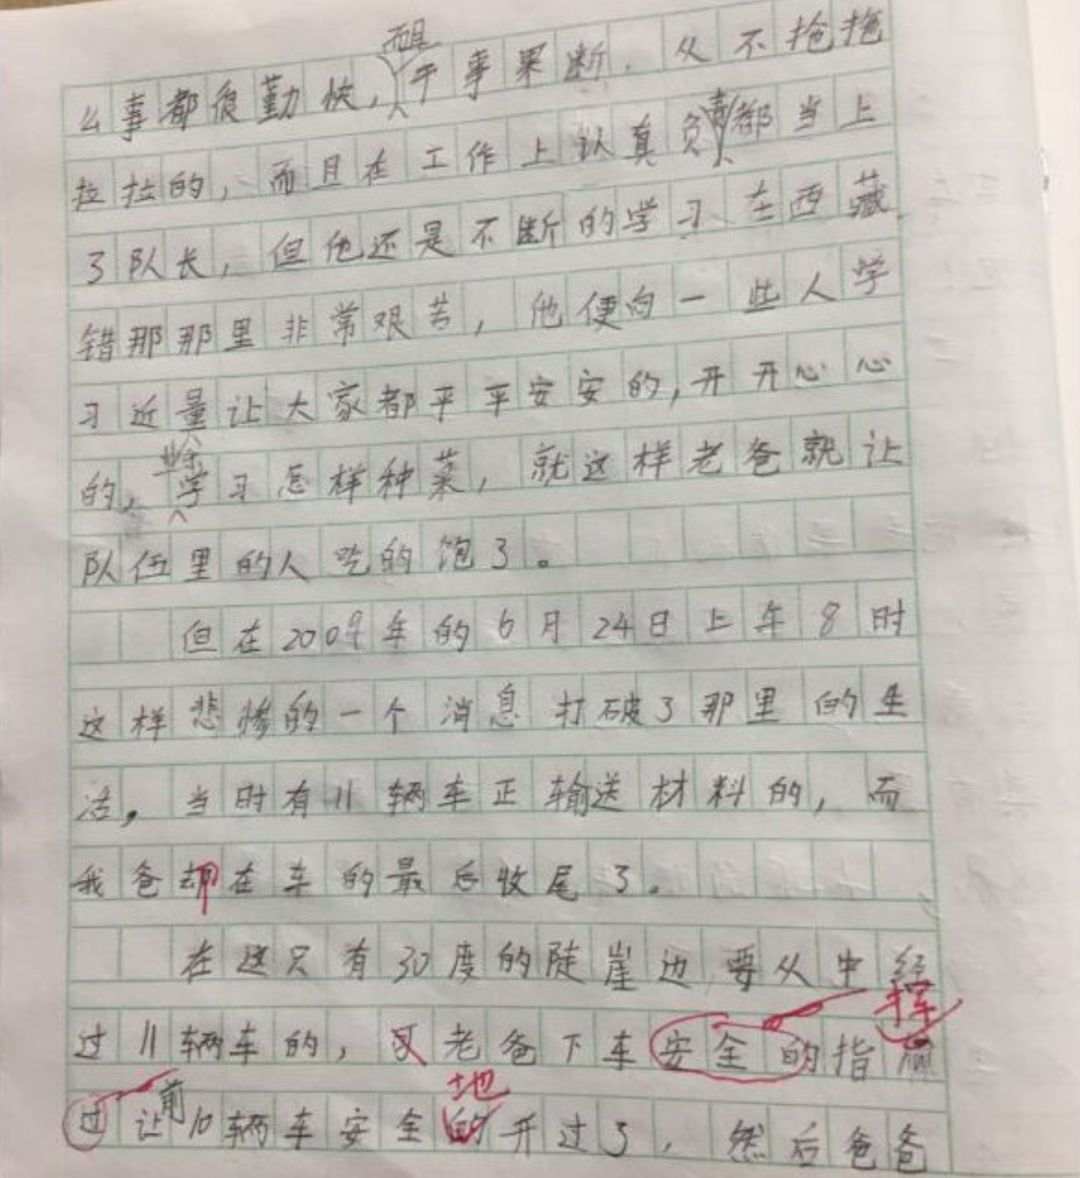 么事都很勤快，而且干事果断．从不拖拖
拉拉的，而且在工作上认真负责都当上
了队长，但他还是不断的学习．在西藏
错那那里非常艰苦，他便向一些人学
习近量让大家都平平安安的，开开心心
的，学习怎样种菜，就这样老爸就让
队伍里的人吃的饱了。
但在2009年的6月24日上午8时
这样悲惨的一个消息打破了那里的生
活。当时有11辆车正输送材料的，而
我爸却在车的最后收尾了。
在这只有30度的陡崖边要从中经
过11辆车的，老爸下车安全的指挥
过让前10辆车安全的地开过了，然后爸爸